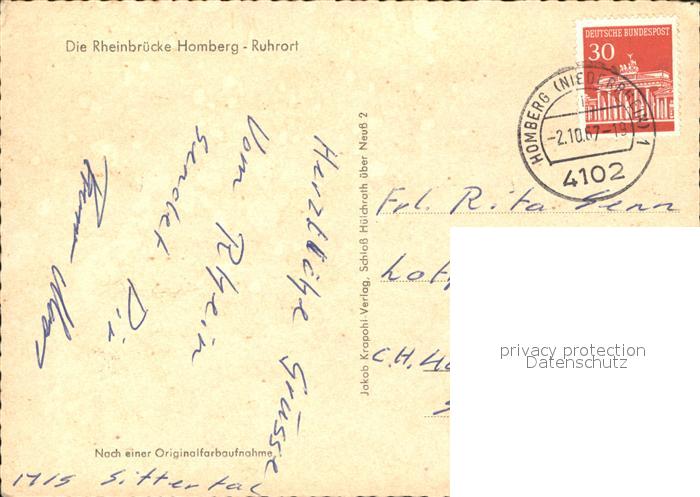 Die Rheinbrücke Homberg - Ruhrort
DEUTSCHE BUNDESPOST
30
HOMBERG (NIEDERRHEIN) 1
-2.10.67-19
4102
Herzliche Grüsse
Vom Rhein
sendet Dir
Jakob Krapohl-Verlag, Schloß Hülchrath über Neuß 2
Frl. Rita Senn
C.H.
privacy protection
Datenschutz
Nach einer Originalfarbaufnahme
M/S Sittertal